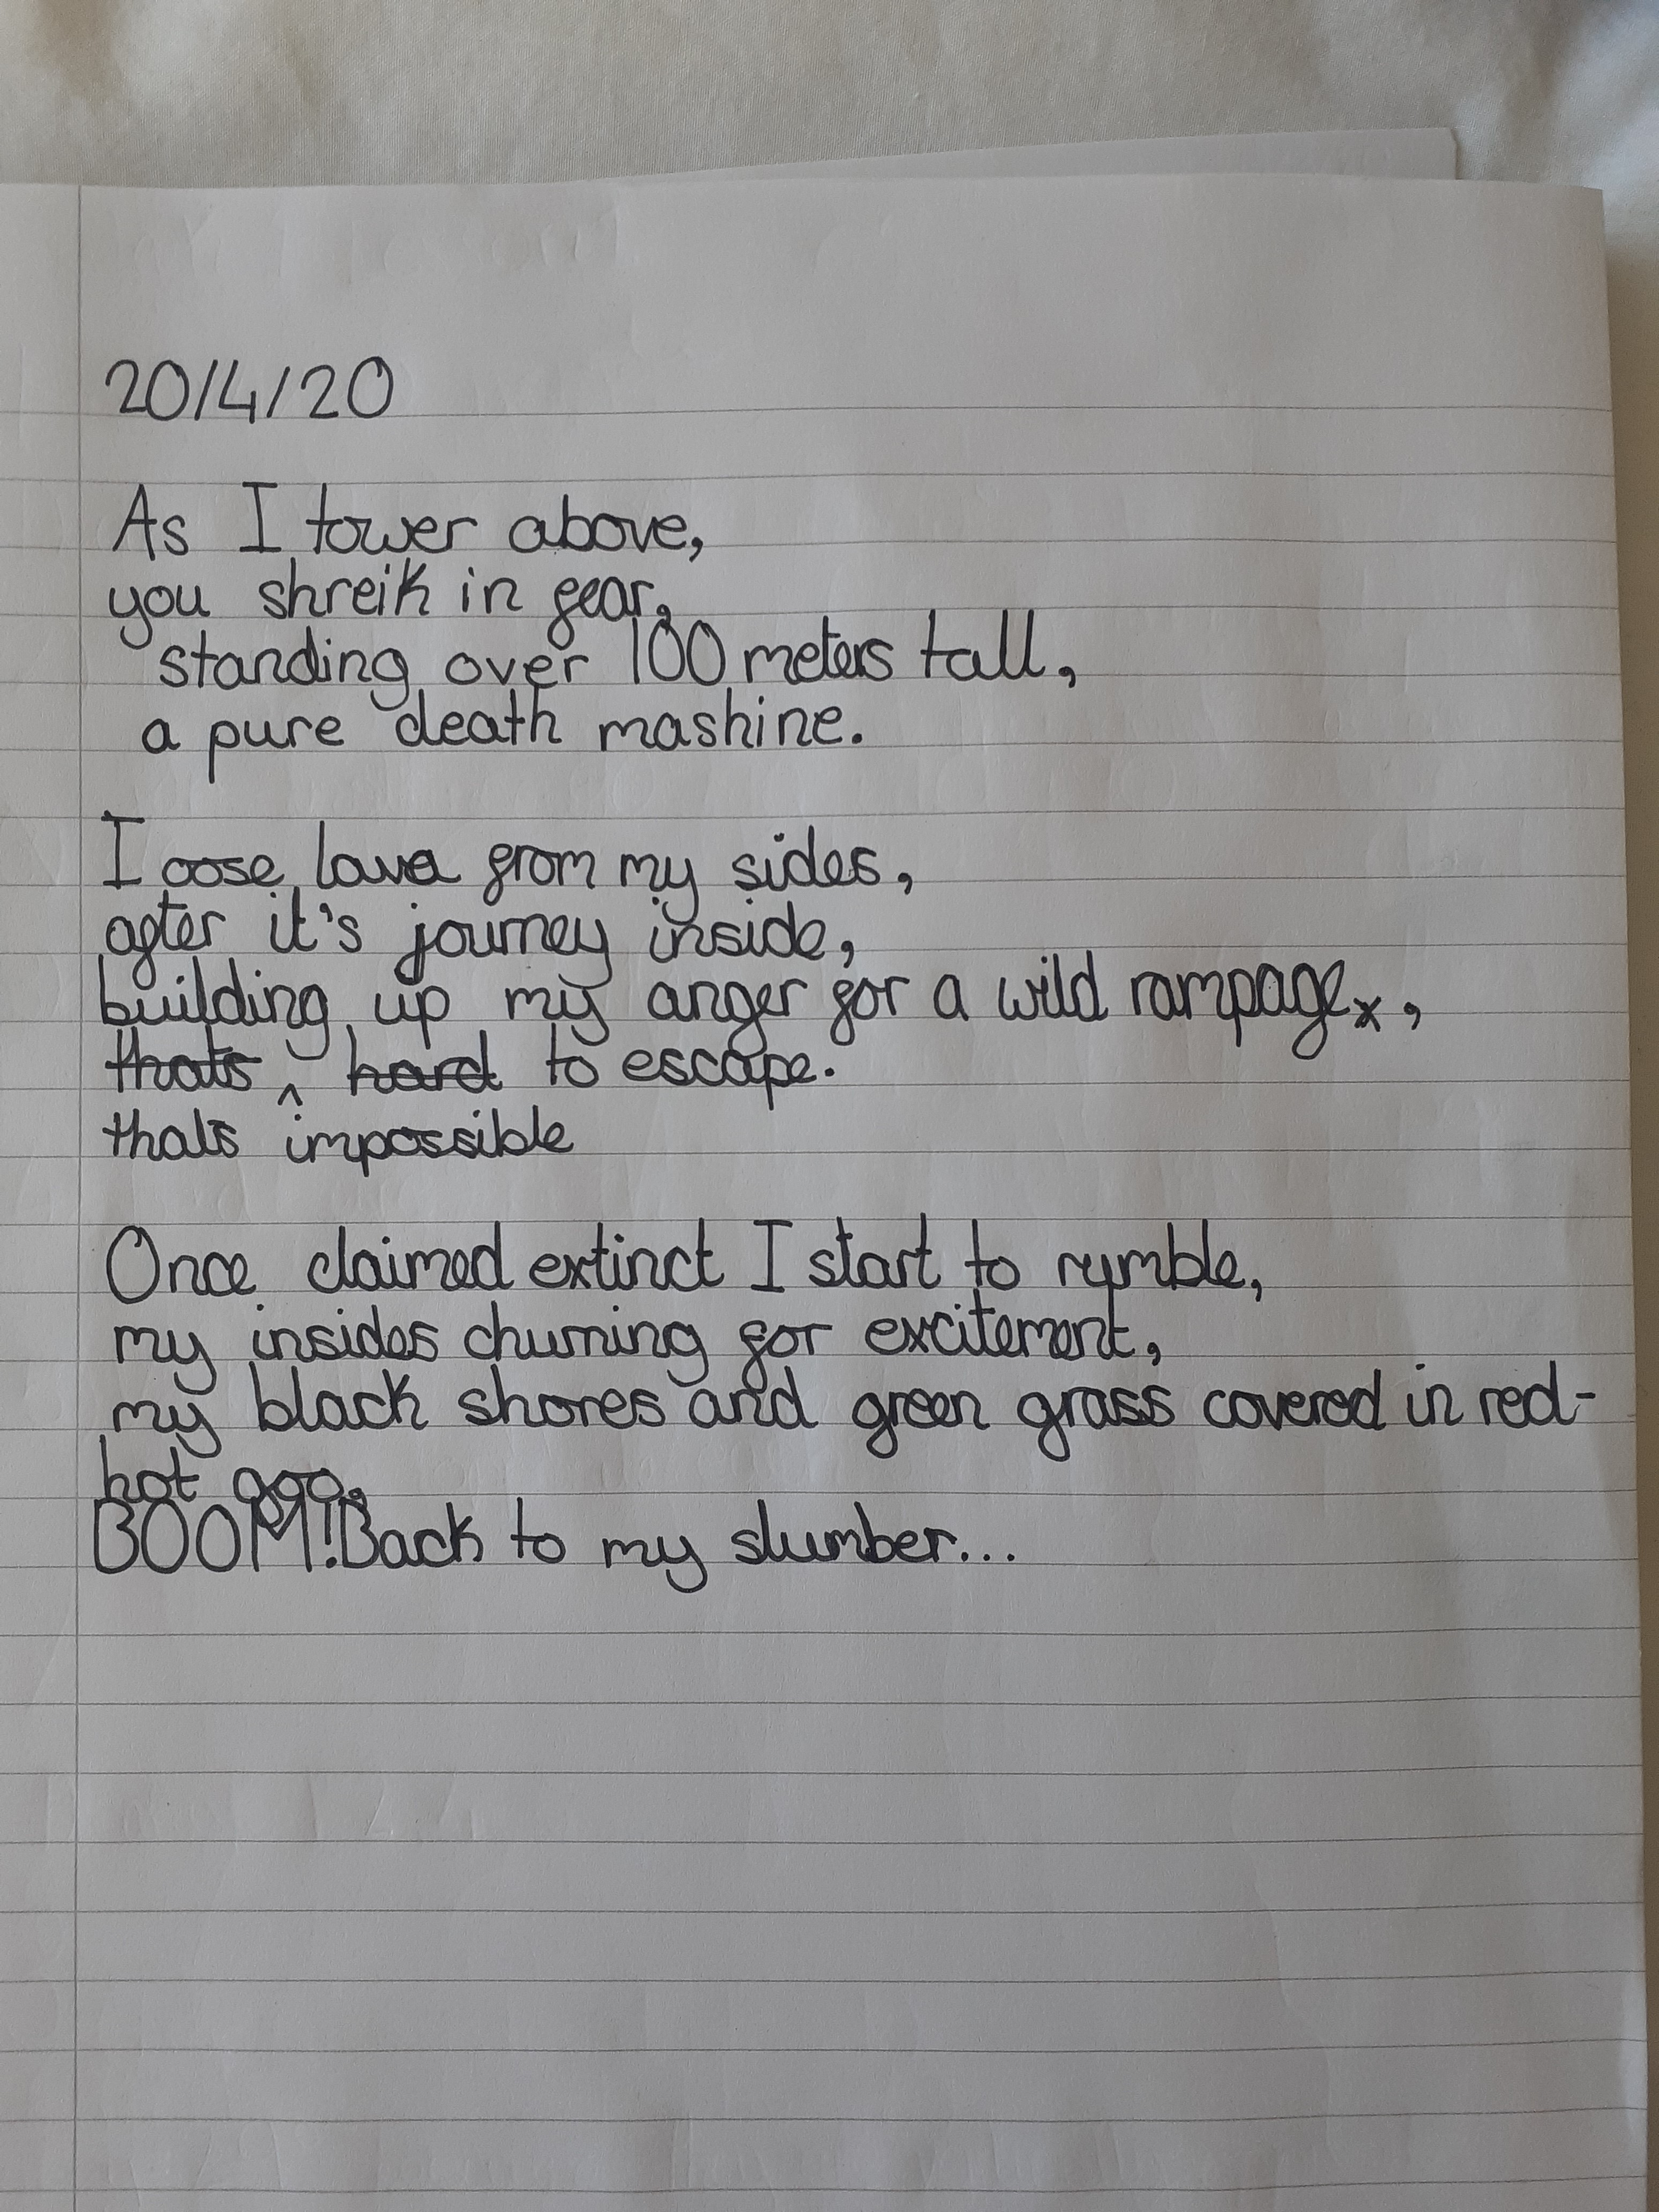 20/4/20
As I tower above,
you shreik in fear,
standing over 100 meters tall,
a pure death mashine.
I oose lava from my sides,
after it's journey inside,
building up my anger for a wild rampage,
thats hard to escape.
thats impossible
Once claimed extinct I start to rumble,
my insides churning for excitement,
my black shores and green grass covered in red-
hot goo.
BOOM! Back to my slumber...